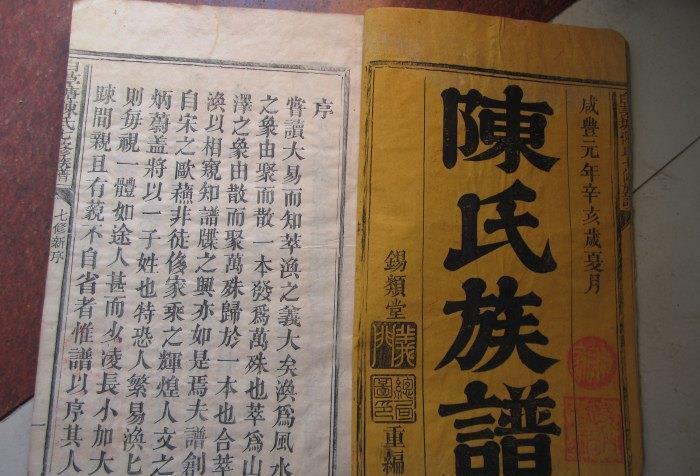 咸豐元年辛亥歲夏月
陳氏族譜
錫類堂
重編
序
嘗讀大易而知萃渙之義大矣渙爲風水
之象由聚而散一本發爲萬殊也萃爲山
澤之象由散而聚萬殊歸於一本也合萃
渙以相窺知譜牒之興亦如是焉夫譜創
自宋之歐蘇非徒侈家乘之輝煌人文之
炳蔚盖將以一子姓也特恐人繁易渙匕
則每視一體如途人甚而少凌長小加大
踈間親且有藐不自省者惟譜以序其人
七修新序